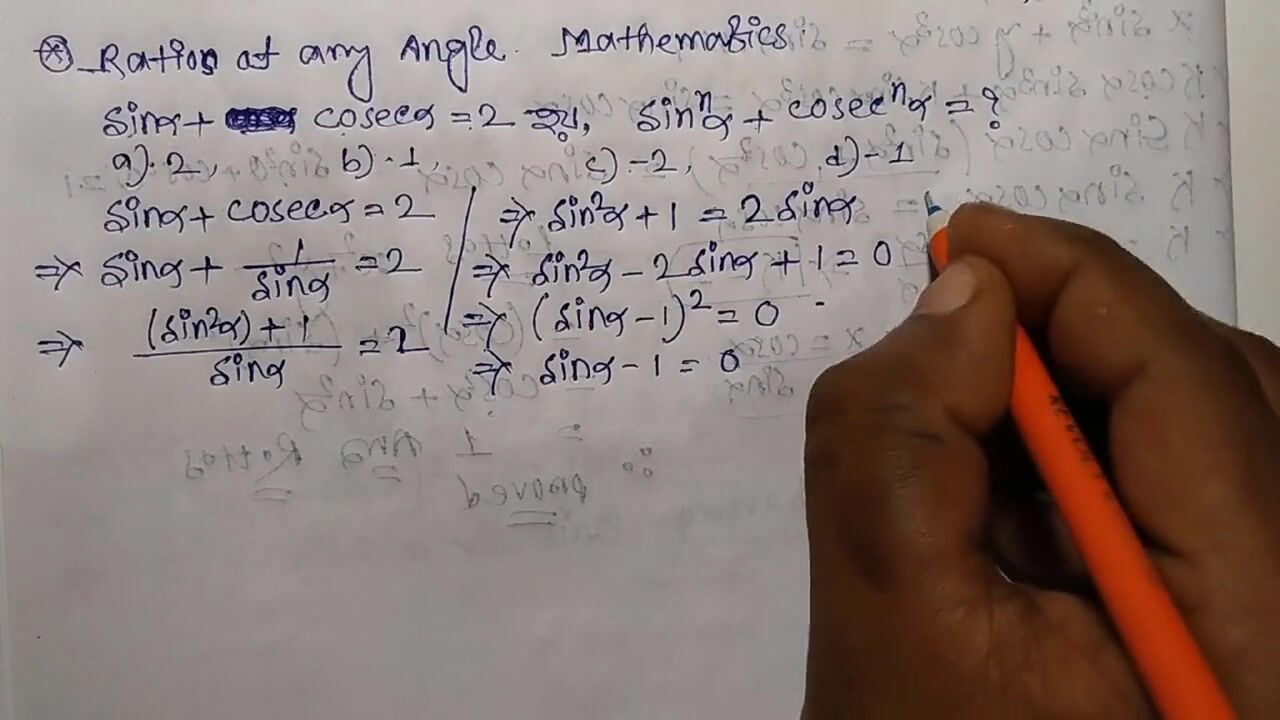 ⊛ Ratios at any Angle. Mathematics:
sinα + cosecα = 2 হয়, sinⁿα + cosecⁿα = ?
a). 2, b) · 1, c) -2, d) -1
sinα + cosecα = 2
⇒ sinα + 1/sinα = 2
⇒ (sin²α) + 1 / sinα = 2
⇒ sin²α + 1 = 2 sinα
⇒ sin²α - 2 sinα + 1 = 0
⇒ (sinα - 1)² = 0
⇒ sinα - 1 = 0